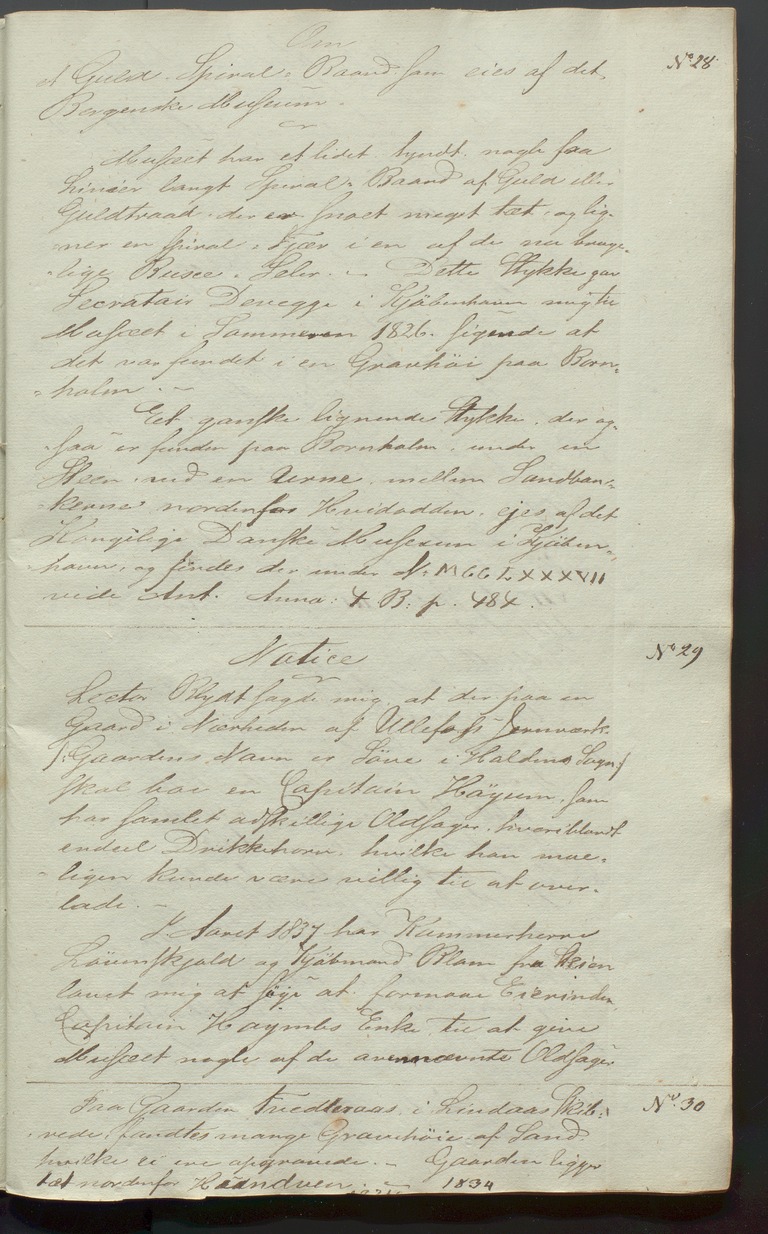 Om
et Guld-Spiral-Baand som eies af det
Bergenske Museum.
No 28
Museet har et lidet tyndt nogle faa
Linier langt Spiral-Baand af Guld eller
Guldtraad, der er snoet meget tæt, og lig-
ner en Spiral-Fjær i en af de nu bruge-
lige Buxe-Seler. - Dette Stykke gav
Secretair Devegge i Kjøbenhavn mig til
Museet i Sommeren 1826 sigende at
det var fundet i en Gravhöi paa Born-
holm. -
Eet ganske lignende Stykke, der og-
saa er funden paa Bornholm, under en
Steen, ved en Urne, mellem Sandban-
kerne nordenfor Hvidodden, ejes af det
Kongelige Danske Museum i Kjöben-
havn, og findes der under No MCCLXXXVII
vide Ant. Anna: 4 B: p. 484.
Notice
No 29
Lector Blydt sagde mig at der paa en
Gaard i Nærheden af Ullefos's Jernværk
/: Gaardens Navn er Löve i Haldens Sogn :/
skal boe en Capitain Höyum, som
har samlet adskillige Oldsager, hvoriblandt
endeel Drikkehorn, hvilke han mue-
ligen kunde være villig til at over-
lade. -
I Aaret 1837 har Kammerherre
Lövenskjold og Kjöbmand Blom fra Skien
lovet mig at söge at formaae Eierinden
Capitain Høymbs Enke til at give
Museet nogle af de ovennævnte Oldsager
No 30
Paa Gaarden Fredlevaas i Lindaas Skib-
rede fandtes mange Gravhöie af Sand
hvilke ei ere opgravede. - Gaarden ligger
tæt nordenfor Haandven. - 1834